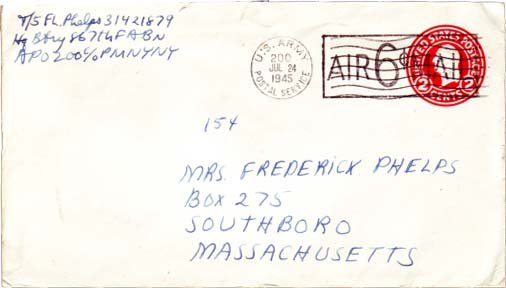 T/5 F.L. Phelps 31421879
Hq Btry 867th F A BN
APO 200 % PM NY NY
U.S. ARMY
200
JUL 24
1945
POSTAL SERVICE
AIR 6¢ MAIL
UNITED STATES POSTAGE
2 CENTS 2
154
MRS. FREDERICK PHELPS
BOX 275
SOUTHBORO
MASSACHUSETTS